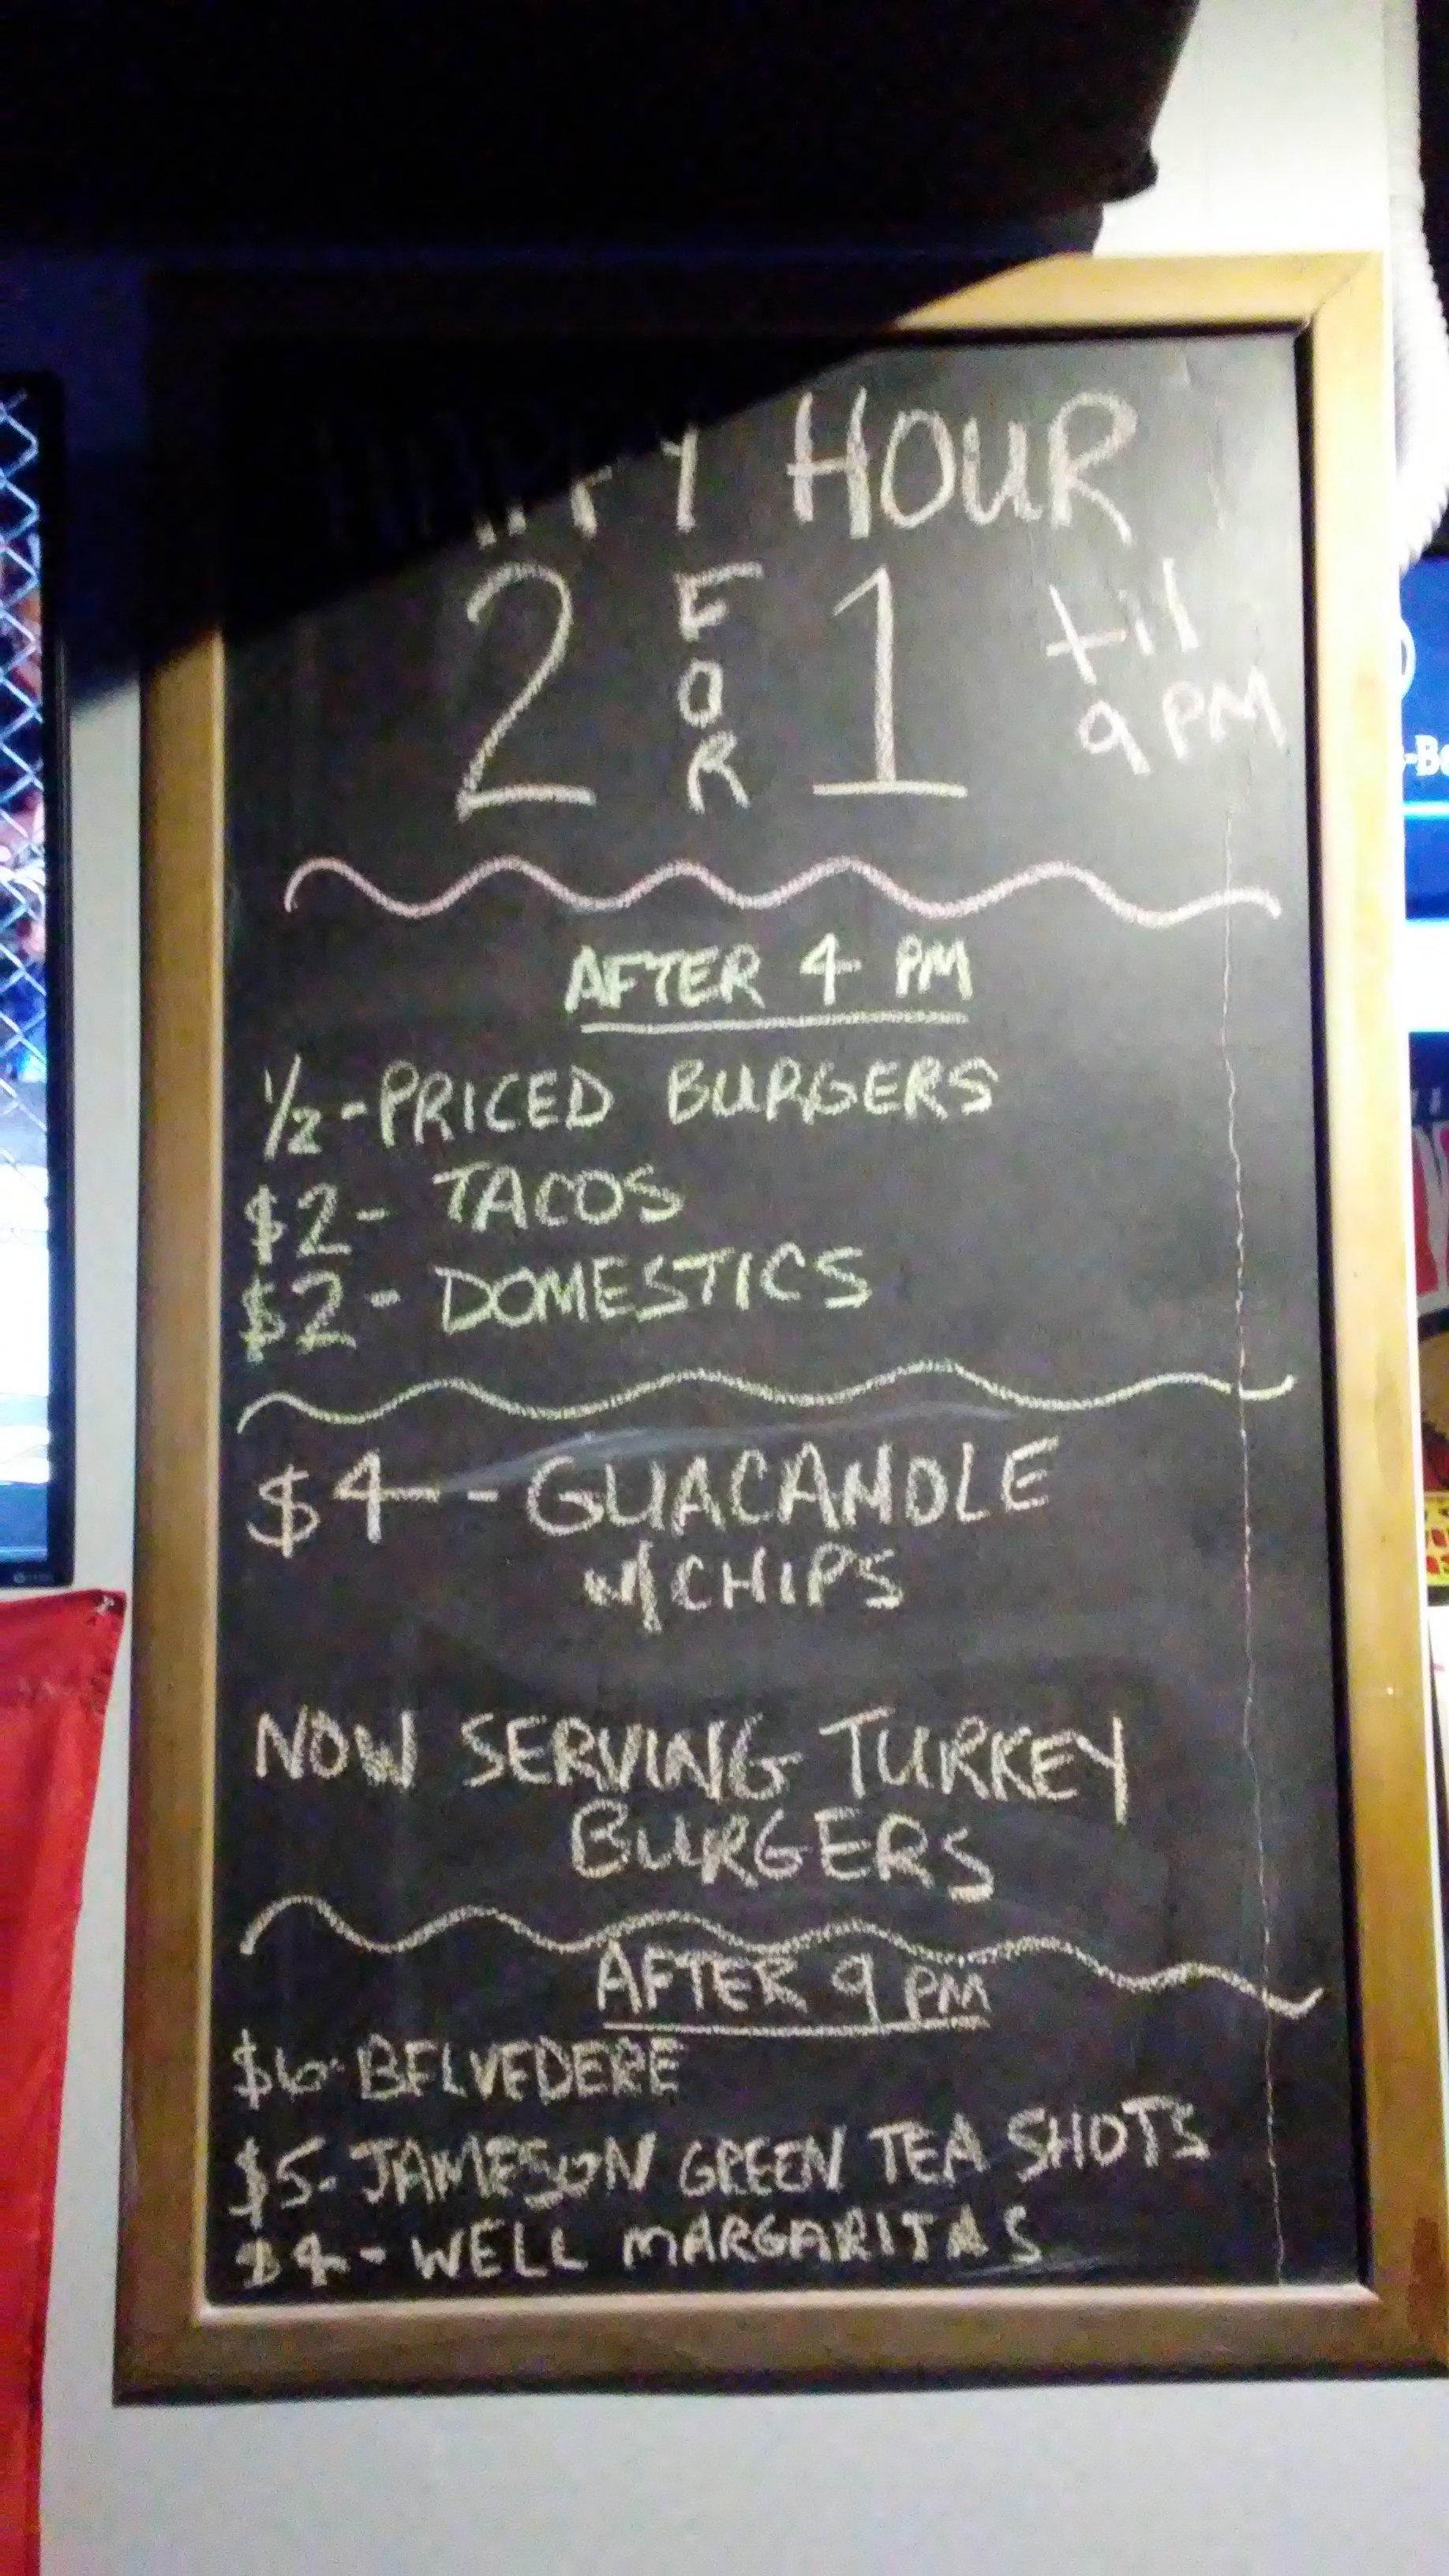 HAPPY HOUR
2 FOR 1 til
9 PM
AFTER 4 PM
1/2-PRICED BURGERS
$2- TACOS
$2- DOMESTICS
$4--GUACAMOLE
w/CHIPS
NOW SERVING TURKEY
BURGERS
AFTER 9 PM
$6-BELVEDERE
$5-JAMESON GREEN TEA SHOTS
$4-WELL MARGARITAS